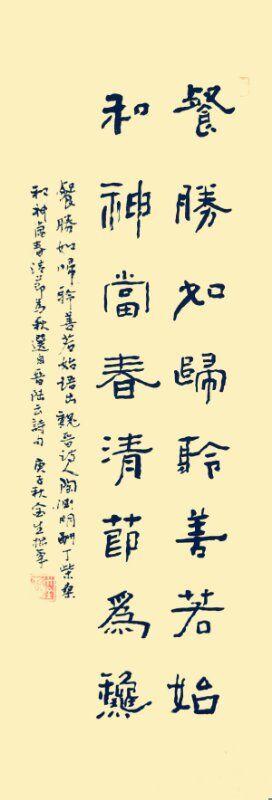 餐勝如歸聆善若始
和神當春清節爲龝
餐勝如歸聆善若始語出魏晉詩人陶淵明酬丁柴桑
和神當春清節為秋選自晉陆云詩句 庚子秋金生拙筆